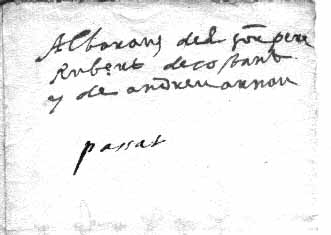 Albarans del sor pere
Rubert de costant
y de andreu arnau
passat